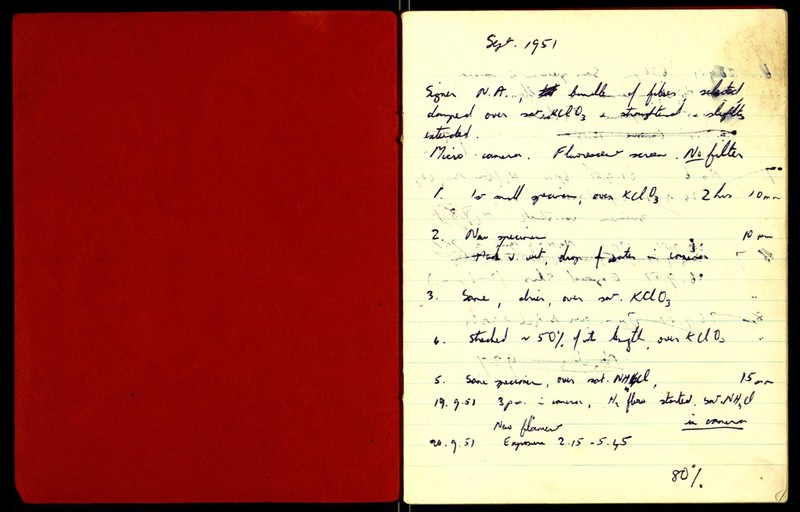 Sept. 1951
Signer N.A., bundle of fibres, selected,
damped over sat. KClO3 & straightened & slightly
extended.
Micro camera. Fluorescent screen. No filter
1. 1st small specimen, over KClO3. 2 hrs 10 mm
2. New specimen 10 mm
v. wet, drop of water in camera "
3. Same, drier, over sat. KClO3 "
4. Stretched ~ 50% of its length, over KClO3 "
5. Same specimen, over sat. NH4Cl, 15 mm
19.9.51 3 p.m. in camera, H2 flow started. sat. NH4Cl
in camera
New filament
20.9.51 Exposure 2.15 - 5.45
80%